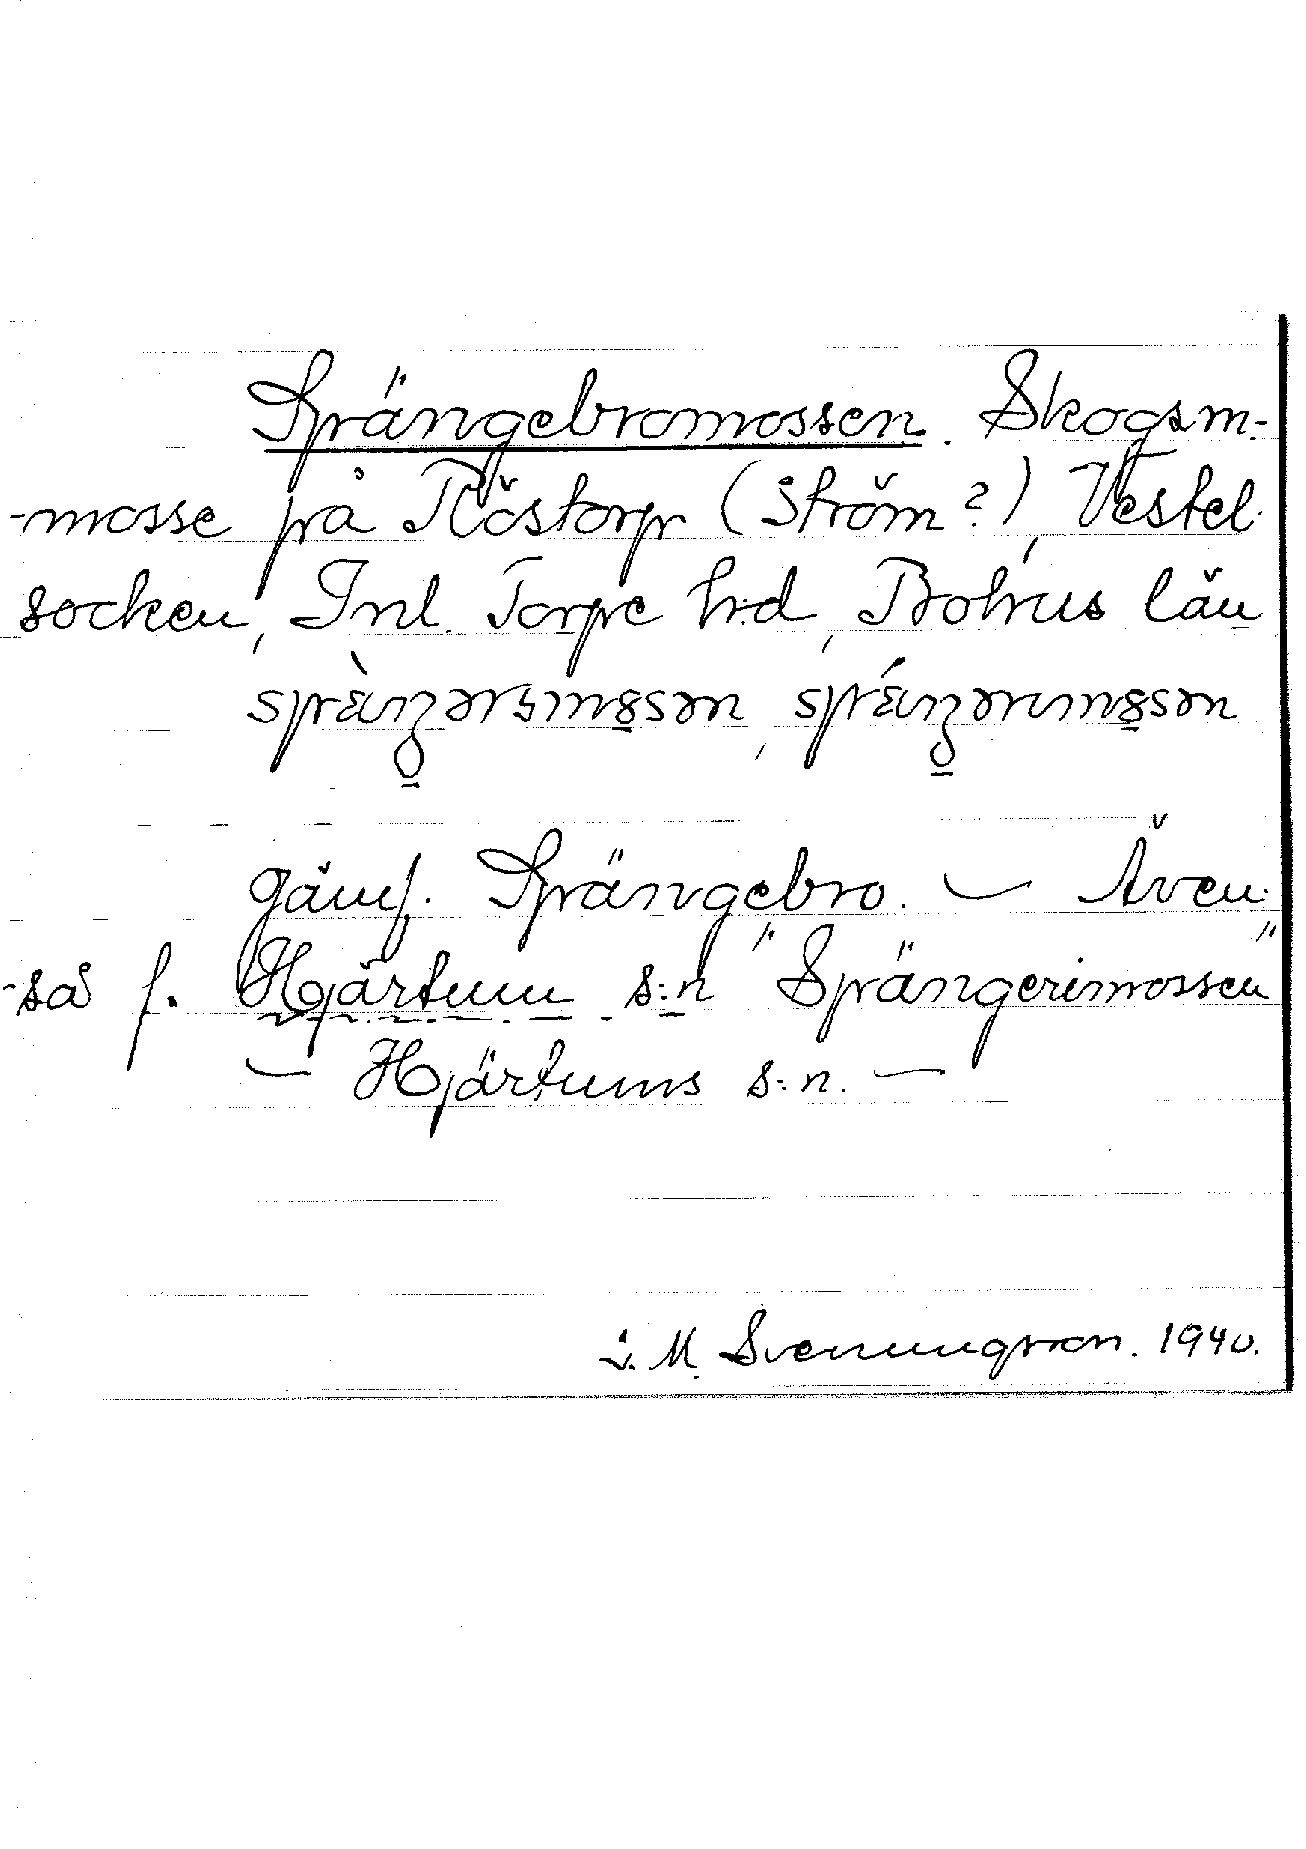 Sprängebromossen. Skogsm-
-mosse på Röstorp (Ström?), Vestel.
socken, Inl. Torpe h:d, Bohus län
gämf. Sprängebro. — Även-
-så f. Hjärtum s:n "Sprängerimossen"
— Hjärtums s:n. —
i. M. Svenungsson. 1940.